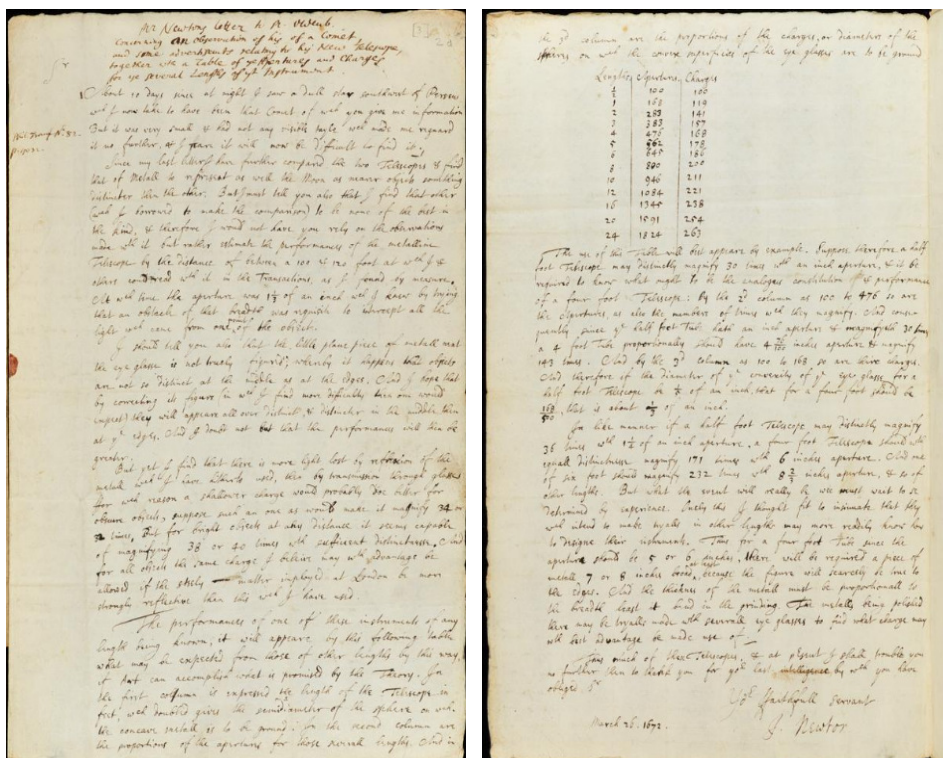 Mr Newtons Letter to Mr. Oldenb.
concerning an observation of his of a Comet,
and some advertisments relating to his New Telescope,
together with a Table of ye Apertures and Charges
for ye several Lengths of yt Instrument.
About 10 days since at night I saw a dull star southwest of Perseus
wch I now take to have been that Comet of wch you give me information
But it was very small & had not any visible tayle wch made me reguard
it no further, & I feare it will now be difficult to find it.
Since my last letter I have further compared the two Telescopes & find
that of Metall to represent as well the Moon as nearer objects something
distincter then the other. But I must tell you also that I find that other
(wch I borrowed to make the comparison) to be none of the best in
its kind, & therefore I would not have you rely on the observations
made wth it but rather estimate the performances of the metalline
Telescope by the distance of between a 100 & 120 foot at wch I &
others could read wth it in the Transactions, as I found by measure.
At wch time the aperture was 1⅓ of an inch wch I knew by trying
that an obstacle of that breadth was requisite to intercept all the
light wch came from one point of the object.
I should tell you also that the little plane piece of metall next
the eye glasse is not truely figured; whereby it happens that objects
are not so distinct at the middle as at the edges. And I hope that
by correcting its figure in wch I find more difficulty then one would
expect they will appear all over distinct, & distincter in the middle then
at ye edges. And I doubt not but that the performances will then be
greater.
But yet I find that there is more light lost by reflexion of the
metall wch I have hitherto used, then by transmission through glasses
for wch reason a shallower charge would probably doe better for
obscure objects, suppose such an one as would make it magnify 34 or
times, But for bright objects at any distance it seems capable
of magnifying 38 or 40 times wth sufficient distinctnesse. And
for all objects the same charge I beleive may wth advantage be
allowed if the matter imployed at London be more
strongly reflective than this wch I have used.
The performances of one of these instruments of any
length being known, it will appear by this following table
what may be expected from those of other lengths by this way,
if Art can accomplish what is promised by the Theory. In
the first column is expressed the length of the Telescope in
feet, wch doubled gives the semidiameter of the sphere on wch
the concave metall is to be ground. In the second column are
the proportions of the apertures for those severall lengths. And in
the 3d column are the proportions of the charges, or diameters of the
spheres on wch the convex superficies of the eye glasses are to be ground
Lengths Apertures Charges
½ 100 100
1 168 119
2 283 141
3 383 157
4 476 168
5 562 178
6 645 186
8 800 200
10 946 211
12 1084 221
16 1345 238
20 1591 254
24 1824 263
The use of this Table will best appeare by example. Suppose therefore a half
foot Telescope may distinctly magnify 30 times wth an inch aperture, & it be
required to know what ought to be the analogous constitution & performance
of a four foot Telescope: By the 2d column as 100 to 476 so are
the Apertures, as also the numbers of times wch they magnify. And conse-
quently since ye half foot Tube hath an inch aperture & magnifyeth 30 times
a 4 foot Tube proportionally should have 4 76/100 inches aperture & magnify
143 times. And by the 3d column as 100 to 168 so are their charges.
And therefore if the diameter of ye convexity of ye eye glasse for a
half foot Telescope be ⅕ of an inch, that for a four foot should be
168/500, that is about ⅓ of an inch.
In like manner if a half foot Telescope may distinctly magnify
36 times wth 1¼ of an inch aperture, a four foot Telescope should wth
equall distinctnesse magnify 171 times wth 6 inches aperture. And one
of six foot should magnify 232 times wth 8 inches aperture, & so of
other lengths. But what the event will really be we must wait to see
determined by experience. Onely this I thought fit to intimate that they
wch intend to make tryalls in other lengths may more readily know how
to designe their instruments. Thus for a four foot Tube since the
aperture should be 5 or 6 inches, there will be required a piece of
metall 7 or 8 inches broad at least, because the figure will scarcely be true to
the edges. And the thicknes of the metall must be proportionall to
the breadth least it bend in the grinding. The metalls being polished
there may be tryalls made wth severall eye glasses to find what charge may
wth best advantage be made use of.
Thus much of these Telescopes, & at present I shall trouble you
no further then to thank you for yor last intelligence by wch you have
obliged, Sr
Yor faithfull servant
March 26. 1672. I. Newton